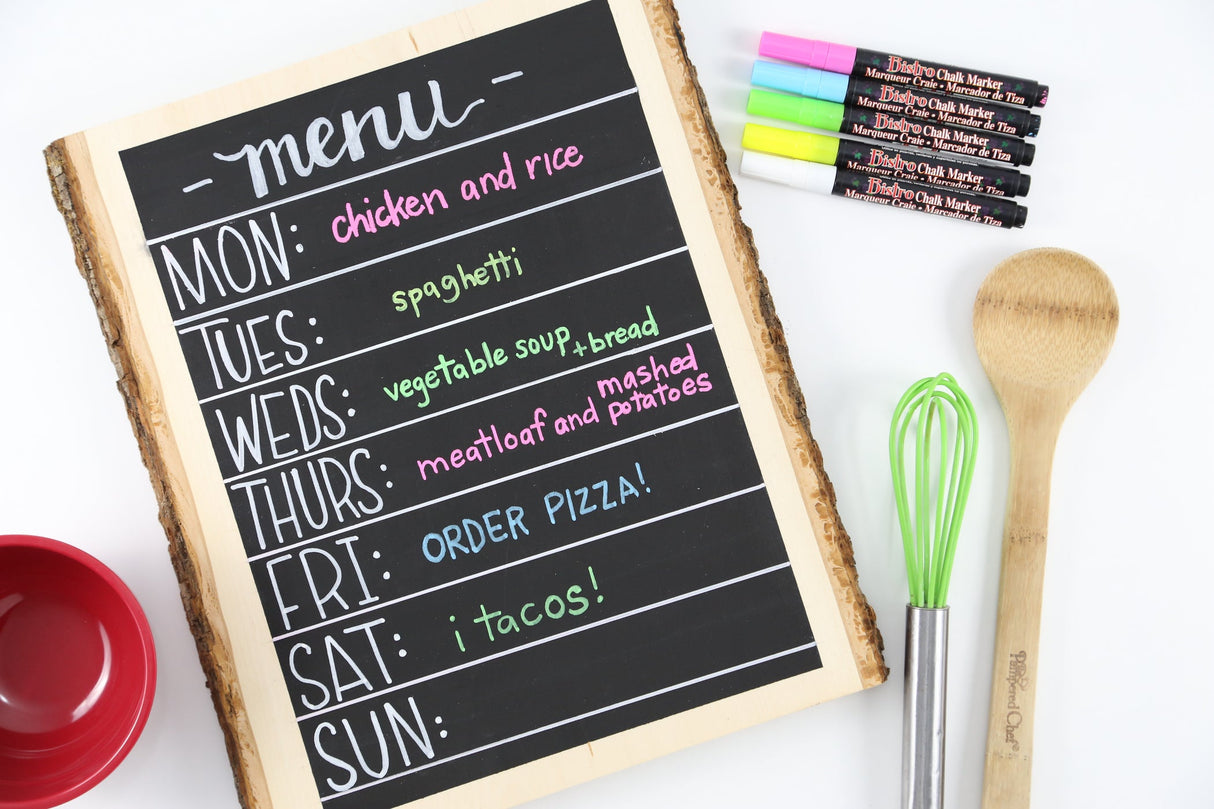 - menu -
MON: chicken and rice
TUES: spaghetti
WEDS: vegetable soup + bread
THURS: meatloaf and mashed potatoes
FRI: ORDER PIZZA!
SAT: ¡ tacos!
SUN:
Bistro Chalk Marker
Marqueur Craie • Marcador de Tiza
Bistro Chalk Marker
Marqueur Craie • Marcador de Tiza
Bistro Chalk Marker
Marqueur Craie • Marcador de Tiza
Bistro Chalk Marker
Marqueur Craie • Marcador de Tiza
Bistro Chalk Marker
Marqueur Craie • Marcador de Tiza
The Pampered Chef®